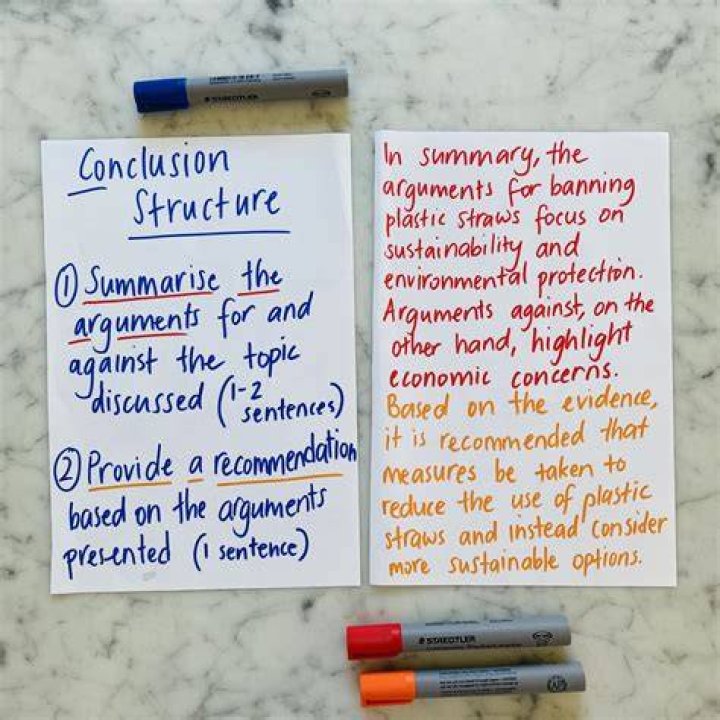 STAEDTLER
Conclusion
Structure
① Summarise the
arguments for and
against the topic
discussed (1-2
sentences)
② Provide a recommendation
based on the arguments
presented (1 sentence)
In summary, the
arguments for banning
plastic straws focus on
sustainability and
environmental protection.
Arguments against, on the
other hand, highlight
economic concerns.
Based on the evidence,
it is recommended that
measures be taken to
reduce the use of plastic
straws and instead consider
more sustainable options.
STAEDTLER